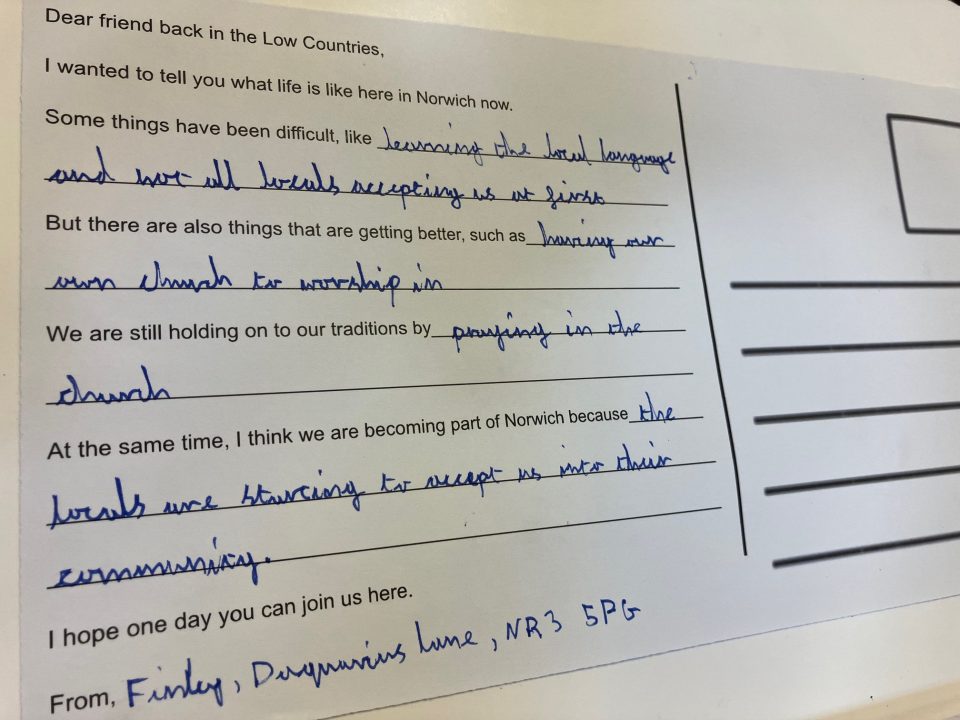 Dear friend back in the Low Countries,
I wanted to tell you what life is like here in Norwich now.
Some things have been difficult, like learning the local language
and not all locals accepting us at first
But there are also things that are getting better, such as having our
own church to worship in
We are still holding on to our traditions by praying in the
church
At the same time, I think we are becoming part of Norwich because the
locals are starting to accept us into their
community.
I hope one day you can join us here.
From, Finley, lane, NR3 5PG